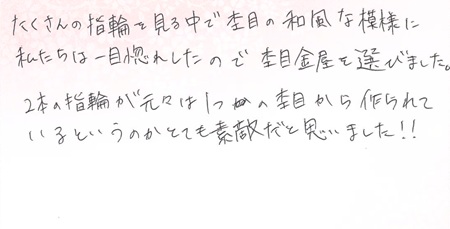 たくさんの指輪を見る中で杢目の和風な模様に
私たちは一目惚れしたので杢目金屋を選びました。
2本の指輪が元々は1つの杢目から作られて
いるというのがとても素敵だと思いました!!